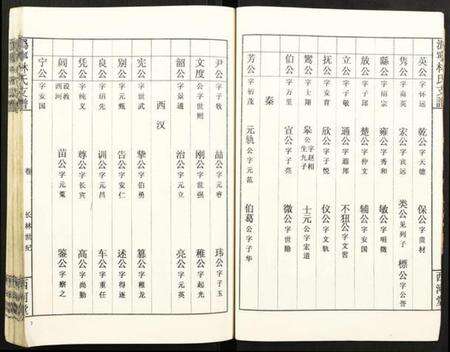 英公字怀远 乾公字天德 保公字贵材
隽公字尚英 宏公字良远 类公见列子 標公字公晋
繇公字绍宗 公字秀和 敏公字明徵
放公字子 楚公字仲文 辅公字安国
立公字子敬 通公字 不狃公字文官
扶公字安育 欣公字子悦 仪公字文轨
公字士翔 皋公字赵相生九子 士元公字宏道
伯公字万里 宣公字子亮 微公字世勛
秦
芳公字裕茂 元轨公字元范 伯葛公字子华
西河堂
尹公字子牧 喆公字元睿 玮公字子玉
文度公字世则 刚公字世强 稚公字起光
韶公字景通 治公字元立 亮公字元英
西汉
宪公字世武 挚公字伯勇 篡公字稚龙
别公字元甄 告公字安仁 述公字得遂
良公字绍先 训公字元昌 车公字重任
凭公字纯义 尊公字长宾 高公字尚勤
闾公设教西河 苗公字元冀 鉴公字察之
宁公字安国
林氏支譜
卷
长林世纪